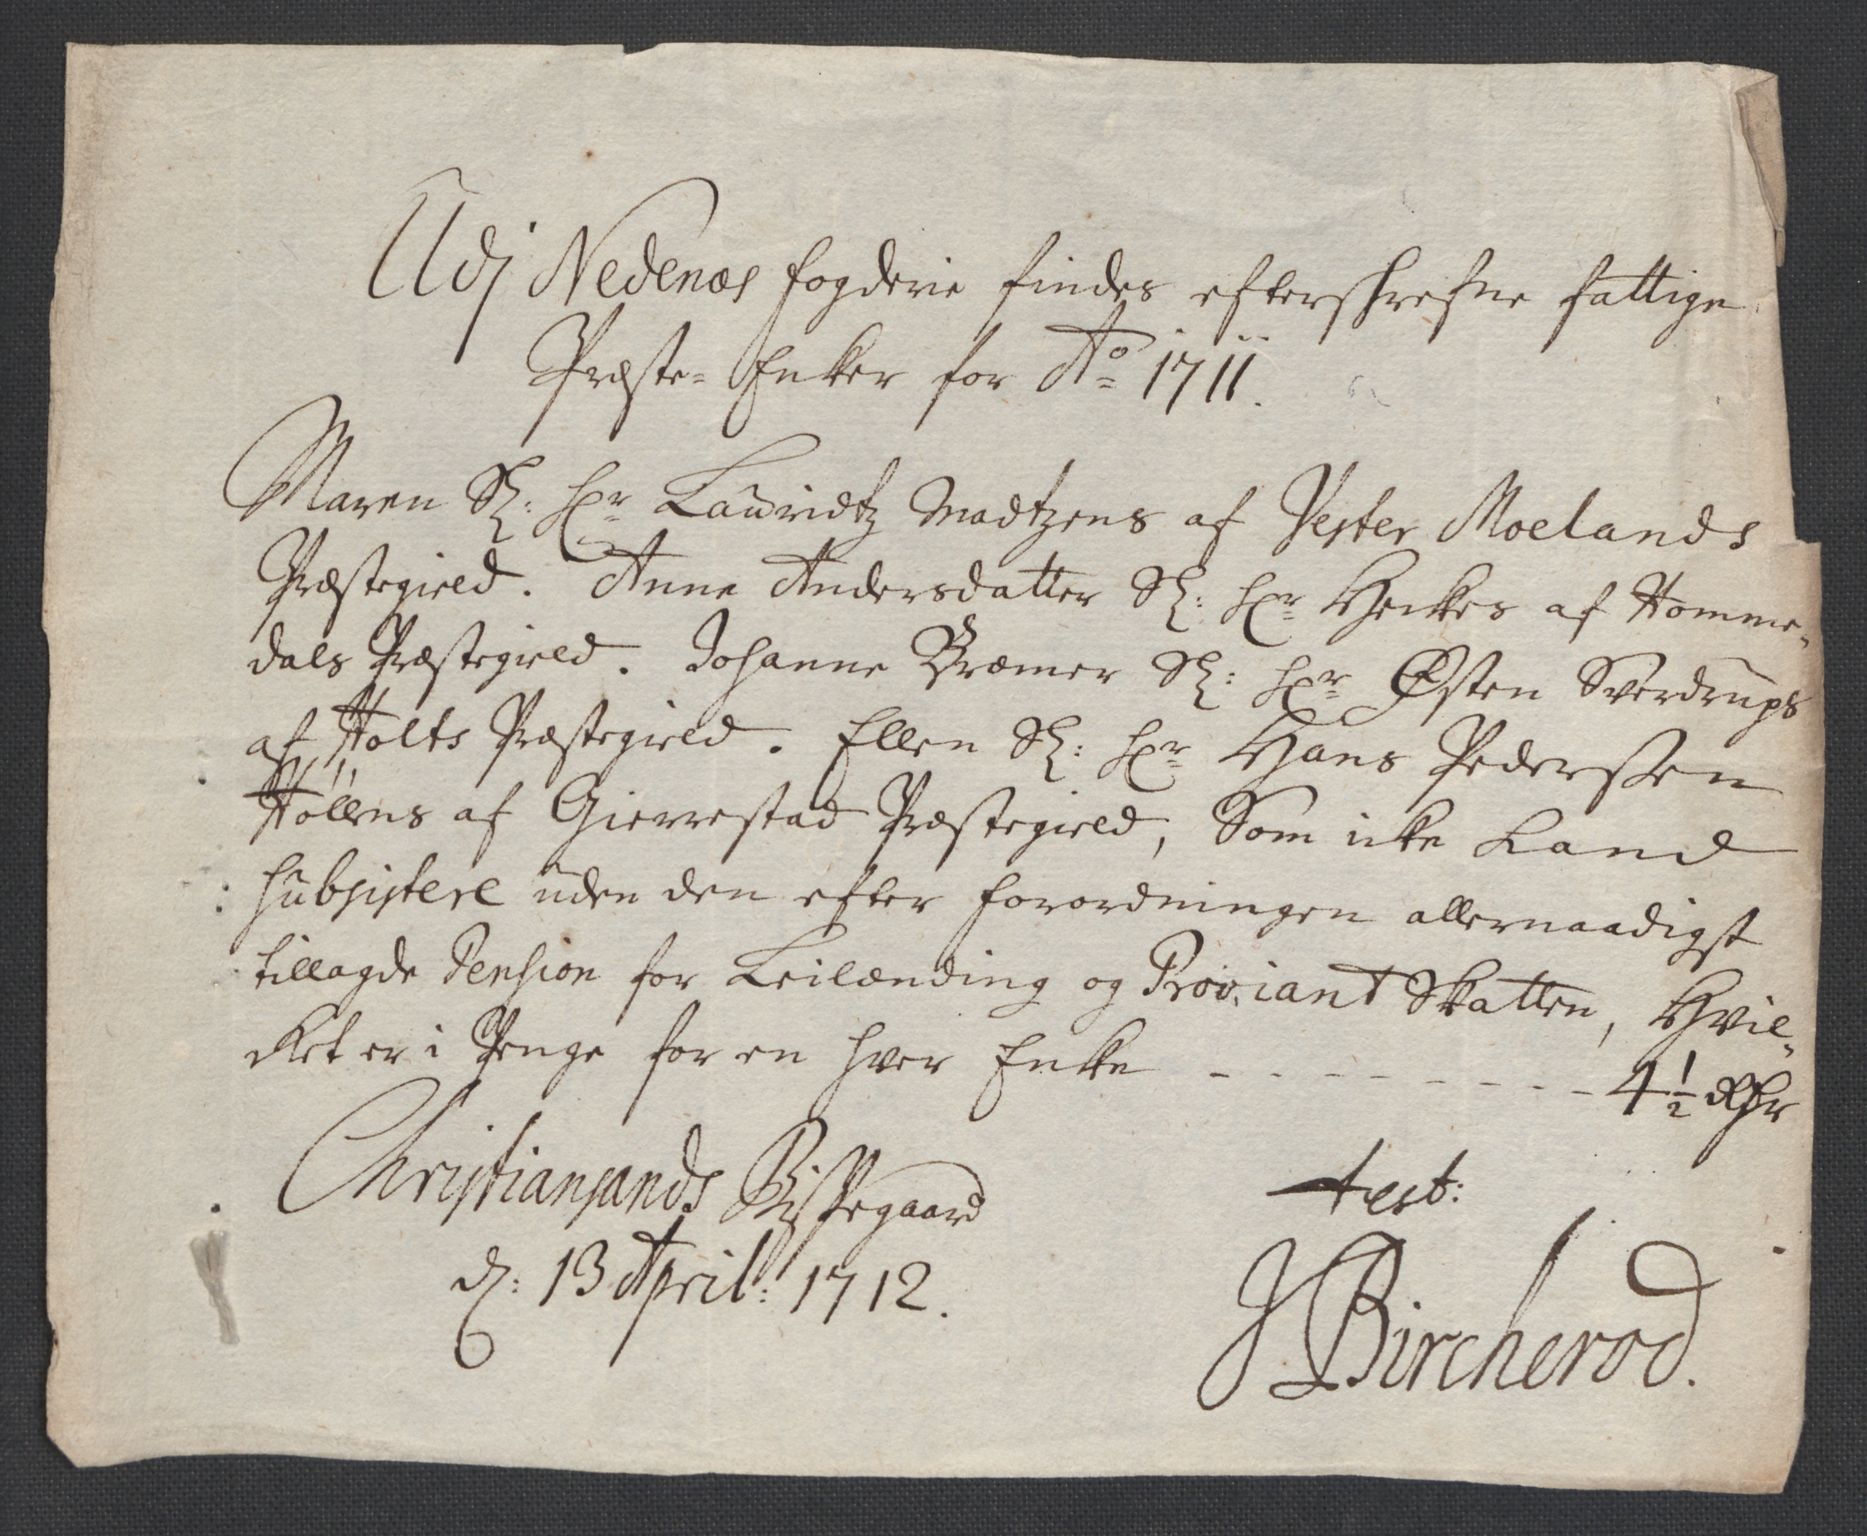 Udj Nedenæs fogderie findes efterskrefne fattige
Præste-Enker for Ao 1711.
Maren Sl: Hr Lauridtz Madtzens af Vester Moelands
Præstegield. Anne Andersdatter Sl: Hr Heckes af Homme-
dals Præstegield. Johanne Bræmer Sl: Hr Østen Sverdrups
af Holts Præstegield. Ellen Sl: Hr Hans Pederssen
Höllens af Gierrestad Præstegield, Som icke kand
subsistere uden den efter forordningen allernaadigst
tillagde Pension for Leilænding og Proviant Skatten, Hvil-
cket er i Penge for en hver Encke - - - - - - - - - 4 1/2 Rdr
Christiansands Bispegaard
d: 13 April: 1712.
test:
J Bircherod.